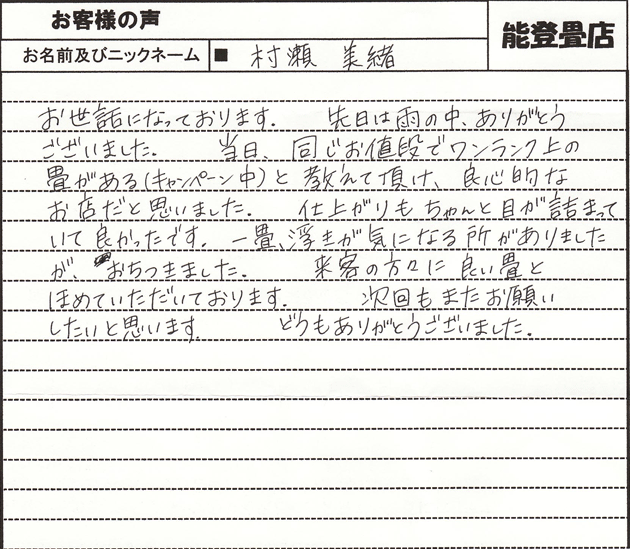 お客様の声
能登畳店
お名前及びニックネーム ■ 村瀬 美緒
お世話になっております. 先日は雨の中、ありがとう
ございました. 当日、同じお値段でワンランク上の
畳がある(キャンペーン中)と教えて頂け、良心的な
お店だと思いました. 仕上がりもちゃんと目が詰まって
いて良かったです. 一畳、浮きが気になる所がありました
が、おちつきました. 来客の方々に良い畳と
ほめていただいております. 次回もまたお願い
したいと思います. どうもありがとうございました.